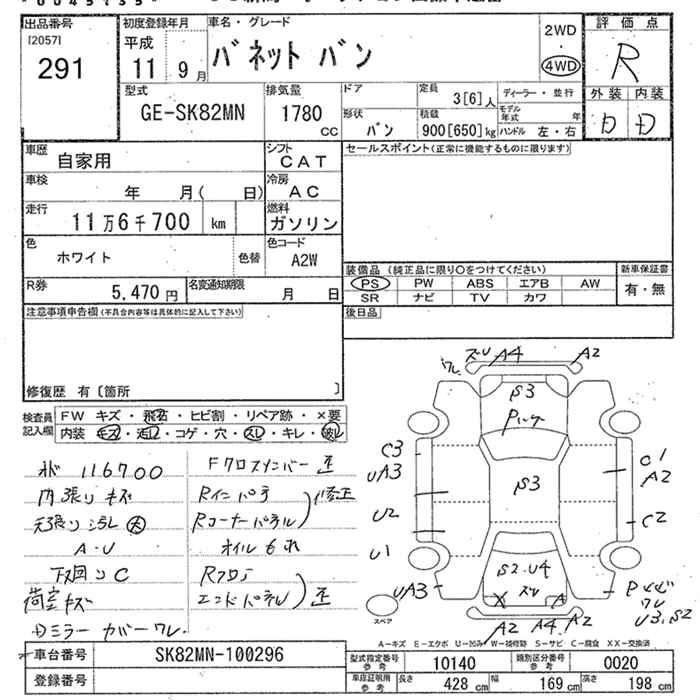 出品番号
[2057]
291
初度登録年月
平成
11 9月
車名・グレード
バネット バン
2WD
・
4WD
評価点
R
外装 内装
D D
型式
GE-SK82MN
排気量
1780
cc
ドア
定員
3[6]人
形状
バン
積載
900[650]kg
ディーラー・並行
モデル年式 年
ハンドル 左・右
車歴
自家用
シフト
CAT
車検
年 月( 日)
冷房
AC
走行
11万6千700 km
燃料
ガソリン
色
ホワイト
色替
色コード
A2W
R券
5,470円
名変通知期限
月 日
セールスポイント(正常に機能するものに限ります)
装備品 (純正品に限り〇をつけてください)
PS PW ABS エアB AW
SR ナビ TV カワ
新車保証書
有・無
後日品
注意事項申告欄(不具合内容等は具体的に記入して下さい)
修復歴 有〔箇所 〕
検査員記入欄
FW キズ・飛石・ヒビ割・リペア跡・×要
内装 キズ・汚レ・コゲ・穴・スレ・キレ・破レ
116700
内張りキズ
天張り
A・U
下回りC
荷室キズ
Dミラーカバーワレ
Fクロスメンバー歪
Rインパネ
Rコーナーパネル
修正
オイルもれ
Rフロア
エンドパネル
歪
ワレ
ズレ A4 A2
S3
C3
UA3
S3
C1
A2
U2
C2
U1
S2.U4
UA3
X A
ワレ
U3.S2
A2 A4 A2
スペア
A－キズ E－エクボ U－凹み W－補修跡 S－サビ C－腐食 XX－交換済
車台番号
SK82MN-100296
登録番号
型式指定番号
参考
10140
類別区分番号
参考
0020
車庫証明用
参考
長さ 428 cm
幅 169 cm
高さ 198 cm